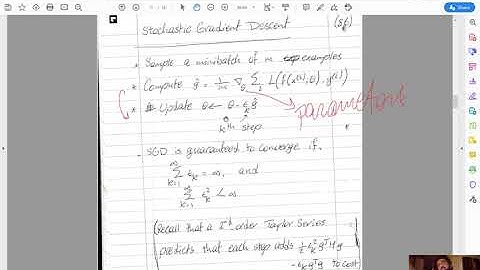 Stochastic Gradient Descent
(Sf)
* Sample a minibatch of m examples
* Compute ĝ = 1/m ∇θ Σi L(f(x(i),θ), y(i))
* Update θ ← θ - εk ĝ
parameters
kth step
- SGD is guaranteed to converge if
∞ Σ k=1 εk = ∞, and
∞ Σ k=1 εk² < ∞
(Recall that a 2nd order Taylor Series
predicts that each step adds ½ εk² gᵀHg
- εk gᵀg to cost